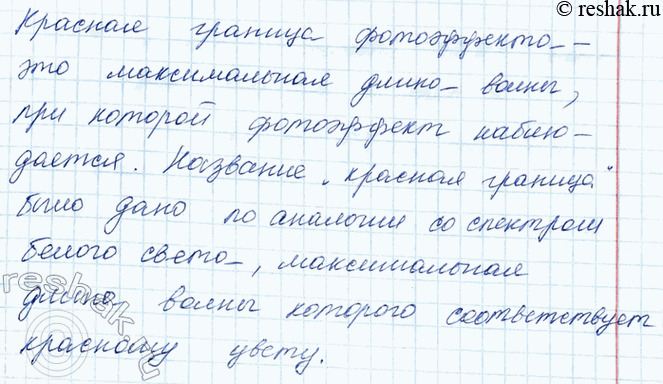 © reshak.ru
Красная граница фотоэффекта -
это максимальная длина волны,
при которой фотоэффект наблю-
дается. Название „красная граница"
было дано по аналогии со спектром
белого света, максимальная
длина волны которого соответствует
красному цвету.
reshak.ru